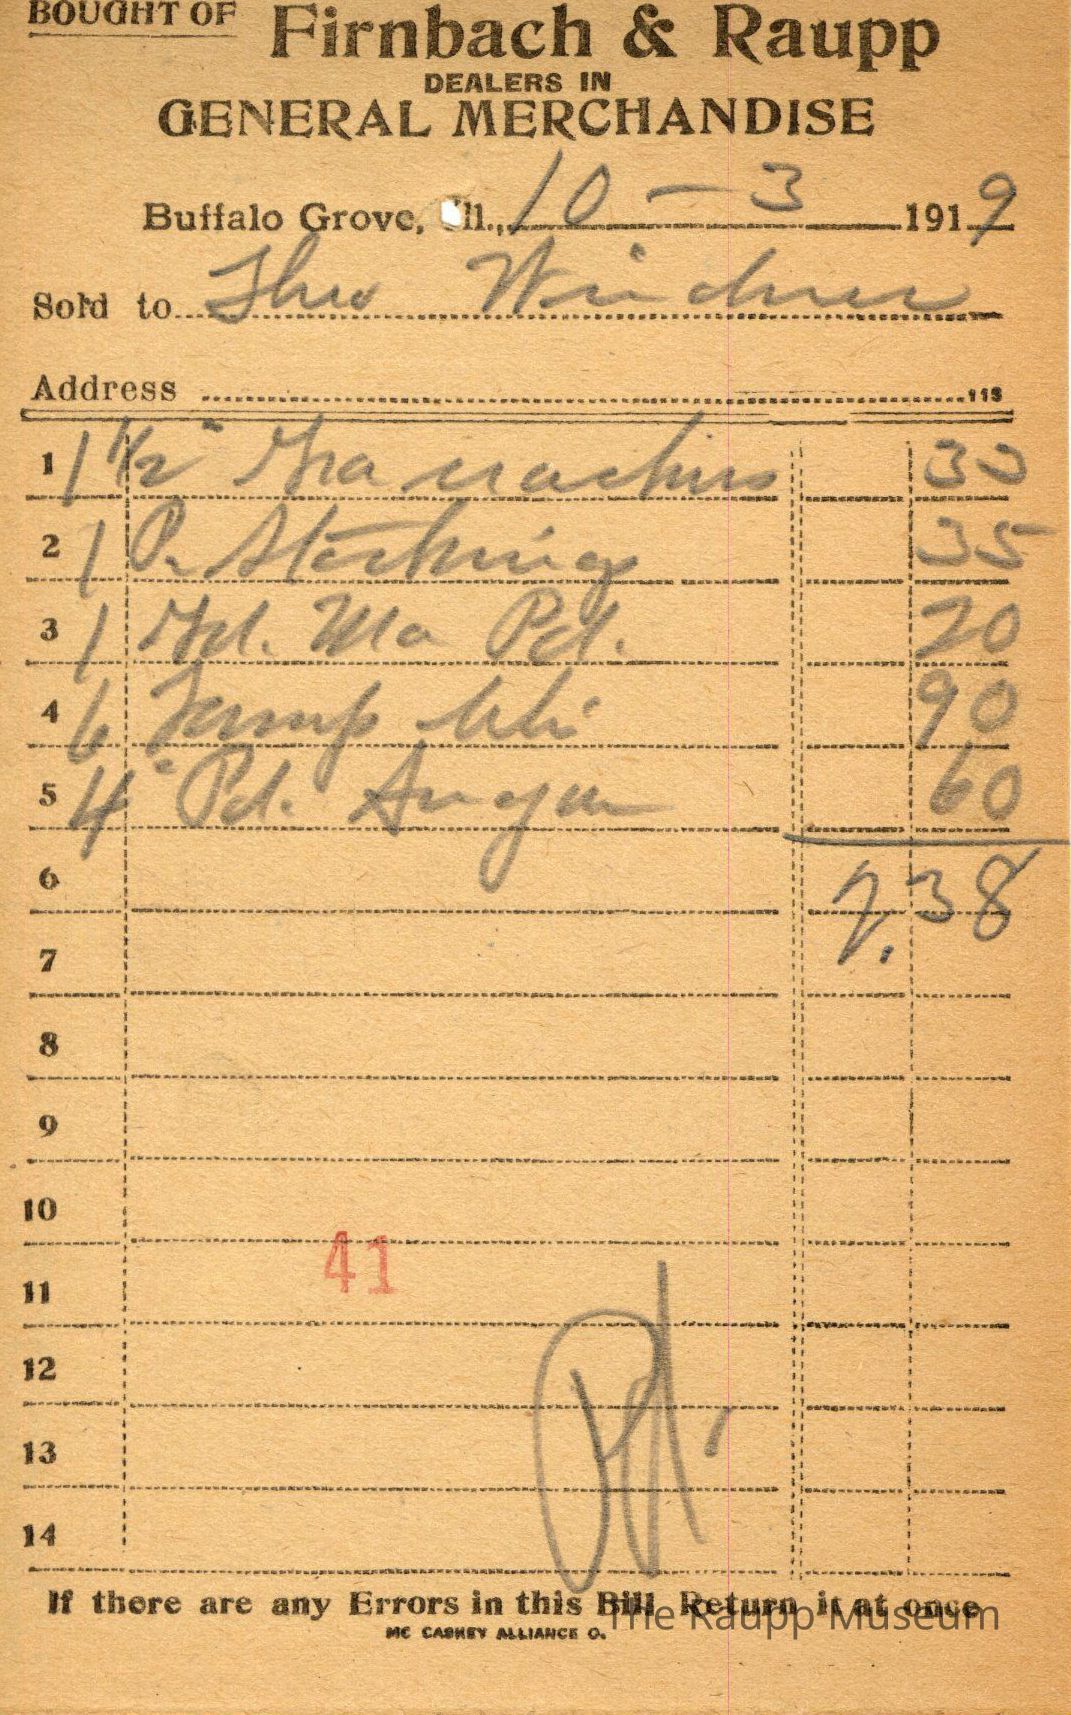 BOUGHT OF
Firnbach & Raupp
DEALERS IN
GENERAL MERCHANDISE
Buffalo Grove, Ill., 10 – 3 1919
Sold to Theo
Address 113
1 1 1/2 " 33
2 1 P. Stockings 35
3 1 Pd. 20
4 6 90
5 4 " Pd. Sugar 60
6 2.38
7
8
9
10
41
11
12
13
14
Pd.
If there are any Errors in this Bill Return it at once
MC CASKEY ALLIANCE O.
The Raupp Museum